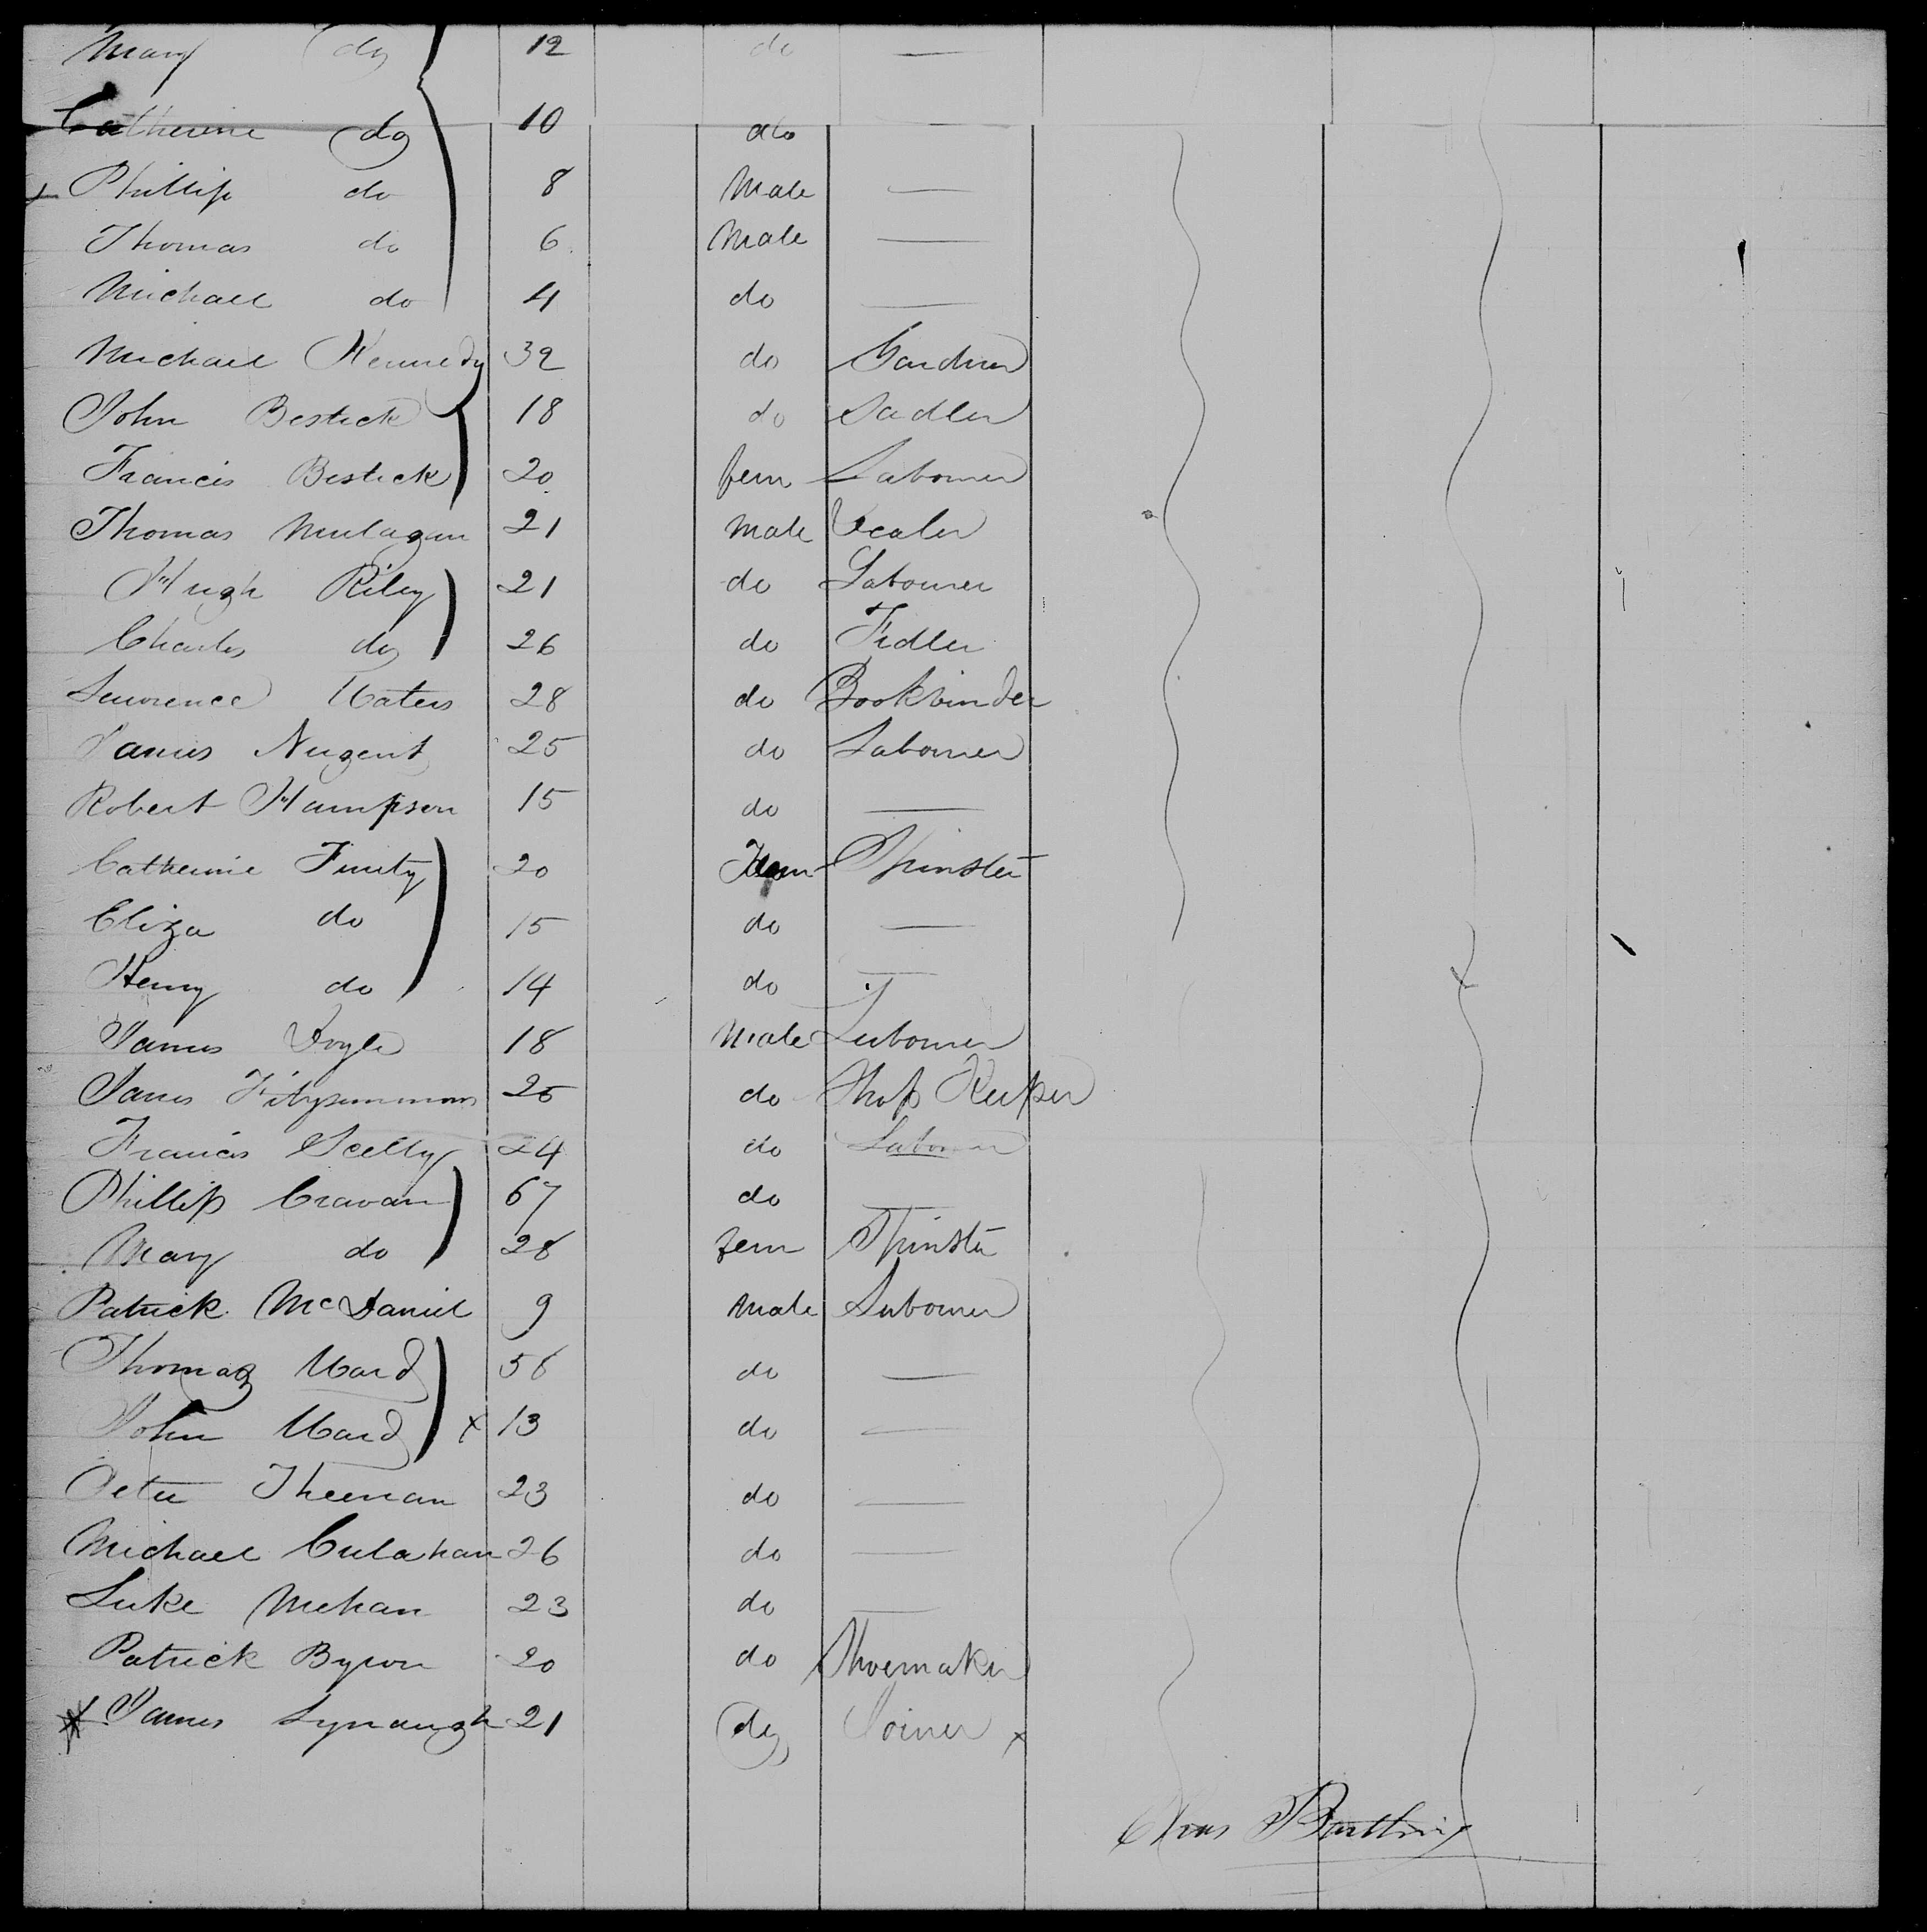 Mary do 12 do —
Catherine do 10 do —
Phillip do 8 Male —
Thomas do 6 Male —
Michael do 4 do —
Michael Kennedy 32 do Gardner
John Bestick 18 do Sadler
Francis Bestick 20 fem Labourer
Thomas Mulagan 21 Male Dealer
Hugh Riley 21 do Labourer
Charles do 26 do Fidler
Lawrence Waters 28 do Bookbinder
James Nugent 25 do Labourer
Robert Hampson 15 do —
Catherine Finity 20 Fem Spinster
Eliza do 15 do —
Henry do 14 do —
James Doyle 18 Male Labourer
James Fitzsimmons 25 do Shop Keeper
Francis Scelly 24 do Labourer
Phillip Cravan 67 do —
Mary do 28 fem Spinster
Patrick McDaniel 9 Male Labourer
Thomas Ward 56 do —
John Ward x 13 do —
Peter Theenan 23 do —
Michael Culahan 26 do —
Luke Mehan 23 do —
Patrick Byron 20 do Shoemaker
James Lynaugh 21 do Joiner x